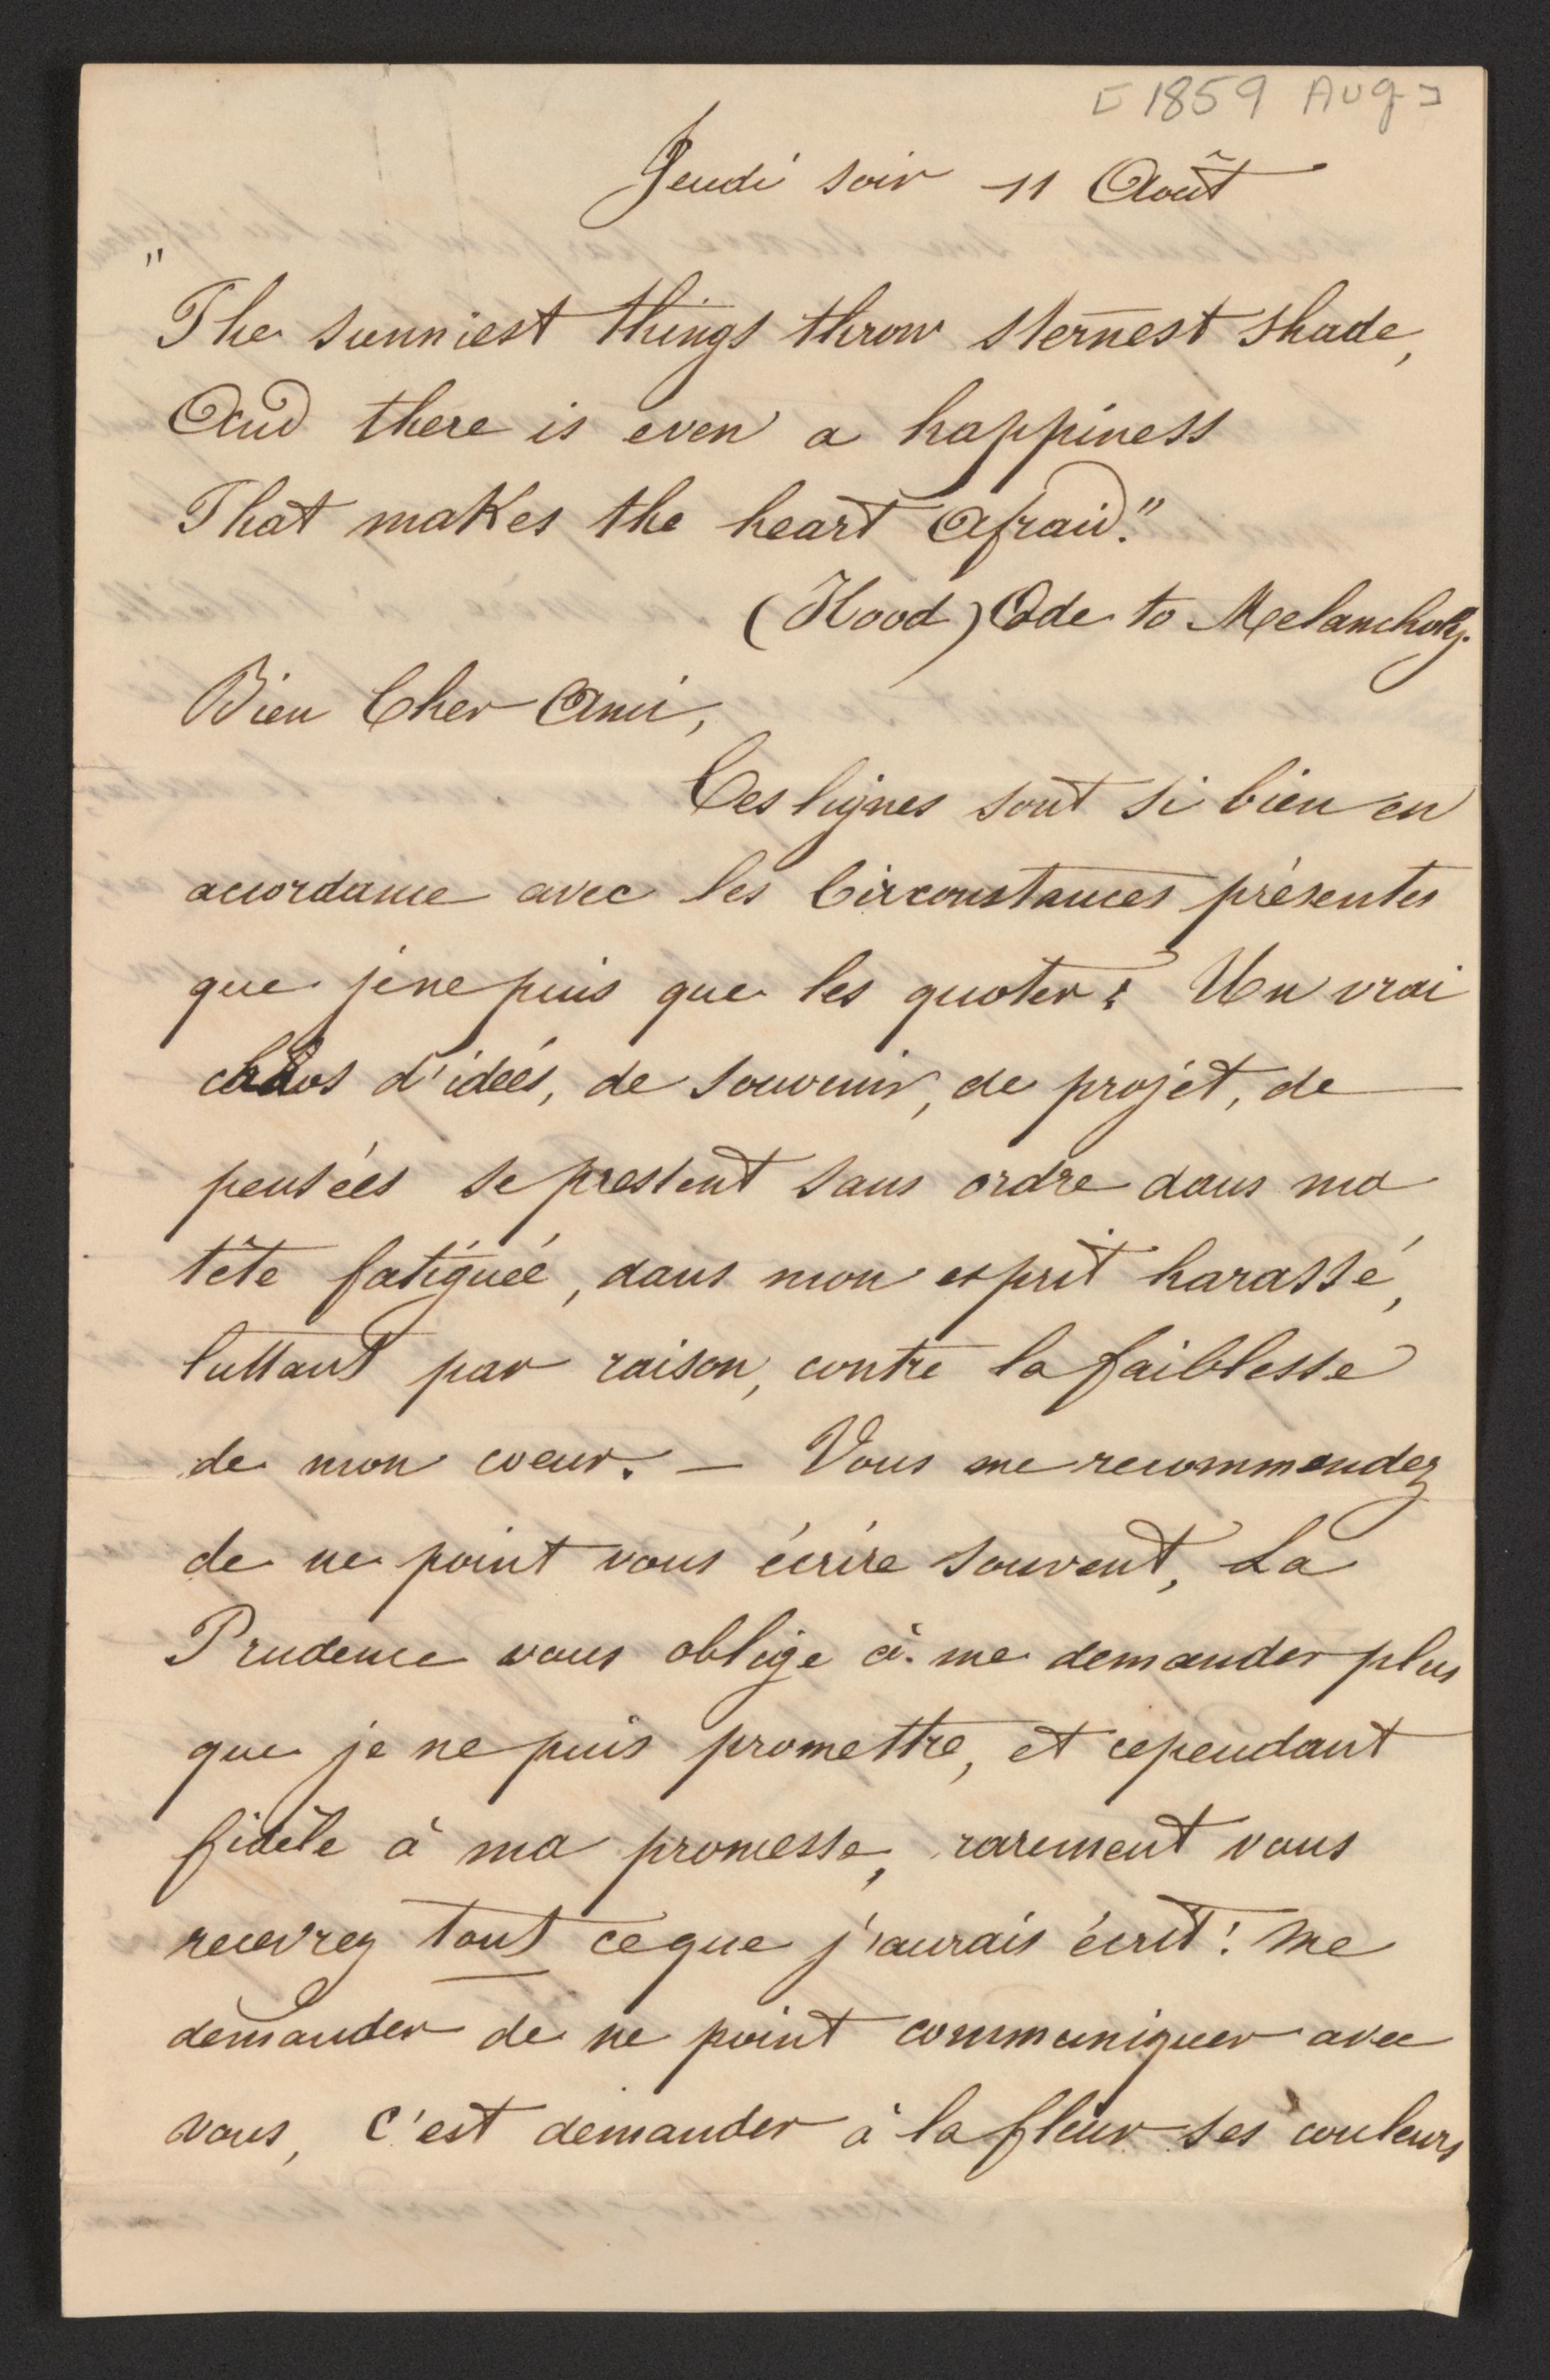 [1859 Aug]
Jeudi soir 11 Août
"
The sunniest things throw sternest shade,
And there is even a happiness
That makes the heart afraid."
(Hood) Ode to Melancholy.
Bien Cher Ami,
Ces lignes sont si bien en
accordance avec les Circonstances présentes
que je ne puis que les quoter! Un vrai
chaos d'idées, de souvenir, de projet, de
pensées se pressent sans ordre dans ma
tête fatiguée, dans mon esprit harassé,
luttant par raison, contre la faiblesse
de mon coeur. — Vous me recommendez
de ne point vous écrire souvent, La
Prudence vous oblige à me demander plus
que je ne puis promettre, et cependant
fidèle à ma promesse, rarement vous
recevrez tout ce que j'aurais écrit! me
demander de ne point communiquer avec
vous, c'est demander à la fleur ses couleurs